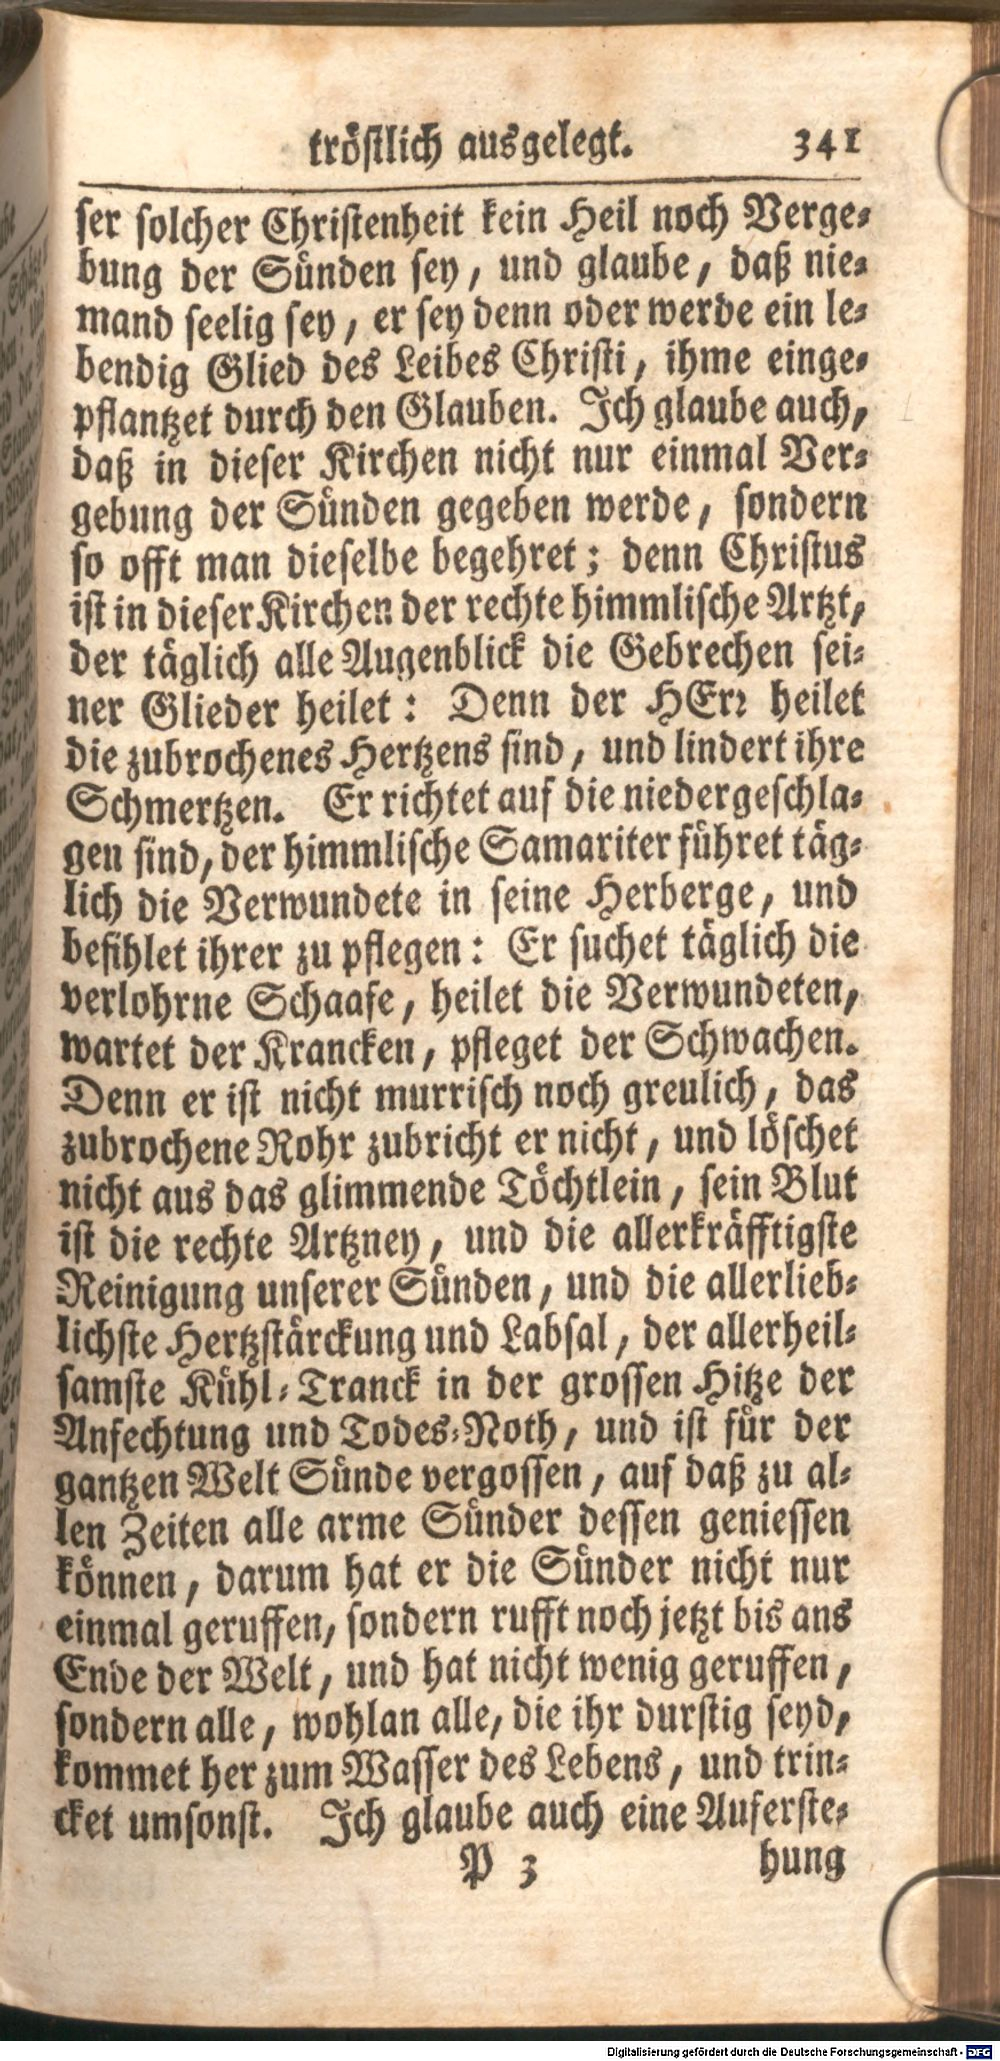 tröstlich ausgelegt. 341
ser solcher Christenheit kein Heil noch Verge-
bung der Sünden sey, und glaube, daß nie-
mand seelig sey, er sey denn oder werde ein le-
bendig Glied des Leibes Christi, ihme einge-
pflantzet durch den Glauben. Ich glaube auch,
daß in dieser Kirchen nicht nur einmal Ver-
gebung der Sünden gegeben werde, sondern
so offt man dieselbe begehret; denn Christus
ist in dieser Kirchen der rechte himmlische Artzt,
der täglich alle Augenblick die Gebrechen sei-
ner Glieder heilet: Denn der HErr heilet
die zubrochenes Hertzens sind, und lindert ihre
Schmertzen. Er richtet auf die niedergeschla-
gen sind, der himmlische Samariter führet täg-
lich die Verwundete in seine Herberge, und
befihlet ihrer zu pflegen: Er suchet täglich die
verlohrne Schaafe, heilet die Verwundeten,
wartet der Krancken, pfleget der Schwachen.
Denn er ist nicht murrisch noch greulich, das
zubrochene Rohr zubricht er nicht, und löschet
nicht aus das glimmende Töchtlein, sein Blut
ist die rechte Artzney, und die allerkräfftigste
Reinigung unserer Sünden, und die allerlieb-
lichste Hertzstärckung und Labsal, der allerheil-
samste Kühl-Tranck in der grossen Hitze der
Anfechtung und Todes-Noth, und ist für der
gantzen Welt Sünde vergossen, auf daß zu al-
len Zeiten alle arme Sünder dessen geniessen
können, darum hat er die Sünder nicht nur
einmal geruffen, sondern rufft noch jetzt bis ans
Ende der Welt, und hat nicht wenig geruffen,
sondern alle, wohlan alle, die ihr durstig seyd,
kommet her zum Wasser des Lebens, und trin-
cket umsonst. Ich glaube auch eine Auferste-
P 3 hung
Digitalisierung gefördert durch die Deutsche Forschungsgemeinschaft - DFG